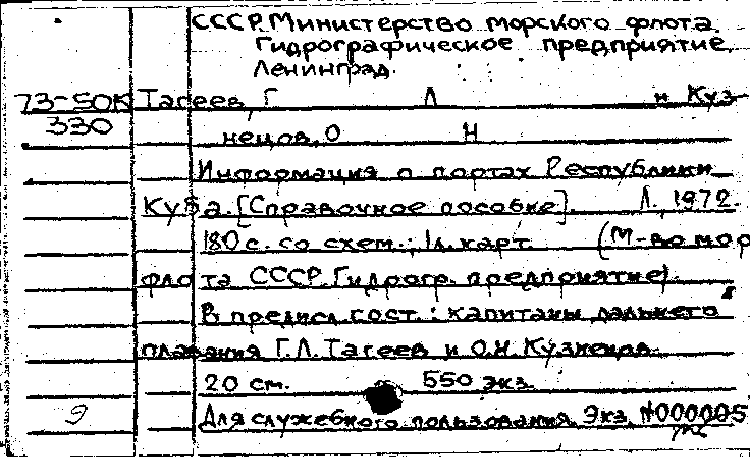 СССР. Министерство морского флота.
Гидрографическое предприятие.
Ленинград.
73-50К Тагеев, Г Л и Куз-
330 нецов, О Н
Информация о портах Республики
Куба. [Справочное пособие]. Л., 1972.
180 с. со схем.; 1 л. карт (М-во мор
флота СССР. Гидрогр. предприятие).
В предисл. сост.: капитаны дальнего
плавания Г.Л. Тагеев и О.Н. Кузнецов.
20 см. 550 экз.
9 Для служебного пользования. Экз. N000005